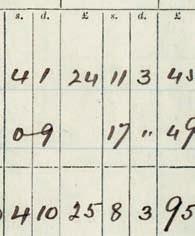 s. d. £ s. d. £
4 1 24 11 3 45
0 9 17 " 49
4 10 25 8 3 95